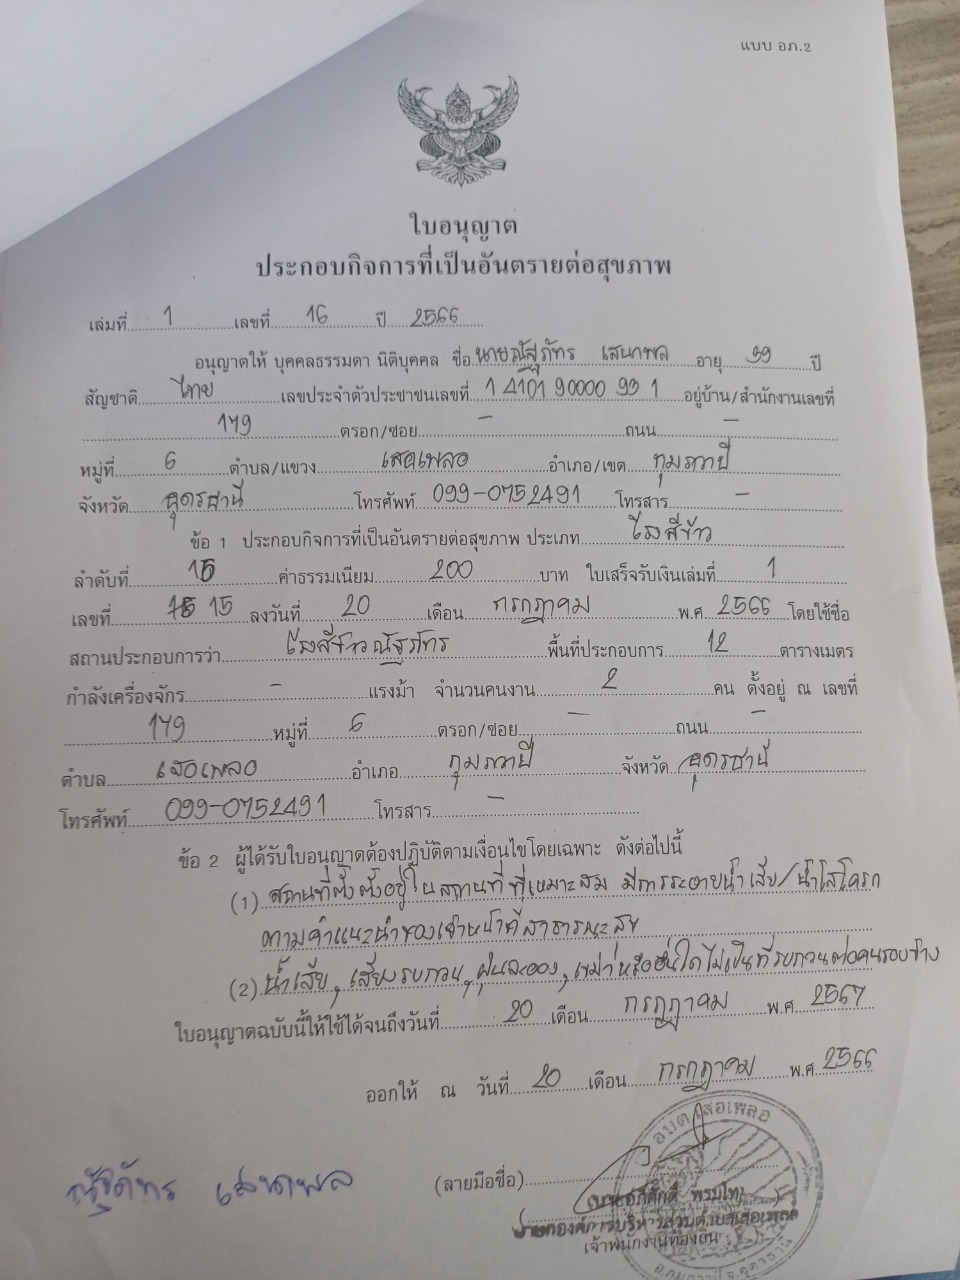 แบบ อภ.2
ใบอนุญาต
ประกอบกิจการที่เป็นอันตรายต่อสุขภาพ
เล่มที่ 1 เลขที่ 16 ปี 2566
อนุญาตให้ บุคคลธรรมดา นิติบุคคล ชื่อ นายณัฐภัทร เสนาพล อายุ 39 ปี
สัญชาติ ไทย เลขประจำตัวประชาชนเลขที่ 1 4101 90000 93 1 อยู่บ้าน/สำนักงานเลขที่
179 ตรอก/ซอย - ถนน -
หมู่ที่ 6 ตำบล/แขวง เสอเพลอ อำเภอ/เขต กุมภวาปี
จังหวัด อุดรธานี โทรศัพท์ 099-0752491 โทรสาร -
ข้อ 1 ประกอบกิจการที่เป็นอันตรายต่อสุขภาพ ประเภท โรงสีข้าว
ลำดับที่ 15 ค่าธรรมเนียม 200 บาท ใบเสร็จรับเงินเล่มที่ 1
เลขที่ 15 ลงวันที่ 20 เดือน กรกฎาคม พ.ศ 2566 โดยใช้ชื่อ
สถานประกอบการว่า โรงสีข้าวณัฐภัทร พื้นที่ประกอบการ 12 ตารางเมตร
กำลังเครื่องจักร - แรงม้า จำนวนคนงาน 2 คน ตั้งอยู่ ณ เลขที่
179 หมู่ที่ 6 ตรอก/ซอย - ถนน -
ตำบล เสอเพลอ อำเภอ กุมภวาปี จังหวัด อุดรธานี
โทรศัพท์ 099-0752491 โทรสาร -
ข้อ 2 ผู้ได้รับใบอนุญาตต้องปฏิบัติตามเงื่อนไขโดยเฉพาะ ดังต่อไปนี้
(1) สถานที่ตั้ง ตั้งอยู่ในสถานที่ที่เหมาะสม มีการระบายน้ำเสีย/น้ำโสโครก
ตามคำแนะนำของเจ้าหน้าที่สาธารณะสุข
(2) น้ำเสีย, เสียงรบกวน, ฝุ่นละออง, เขม่าหรืออื่นใดไม่เป็นที่รบกวนต่อคนรอบข้าง
ใบอนุญาตฉบับนี้ให้ใช้ได้จนถึงวันที่ 20 เดือน กรกฎาคม พ.ศ. 2567
ออกให้ ณ วันที่ 20 เดือน กรกฎาคม พ.ศ. 2566
อบต.เสอเพลอ
ณัฐภัทร เสนาพล (ลายมือชื่อ)
นายกองค์การบริหารส่วนตำบลเสอเพลอ
เจ้าพนักงานท้องถิ่น
อ.กุมภวาปี จ.อุดรธานี